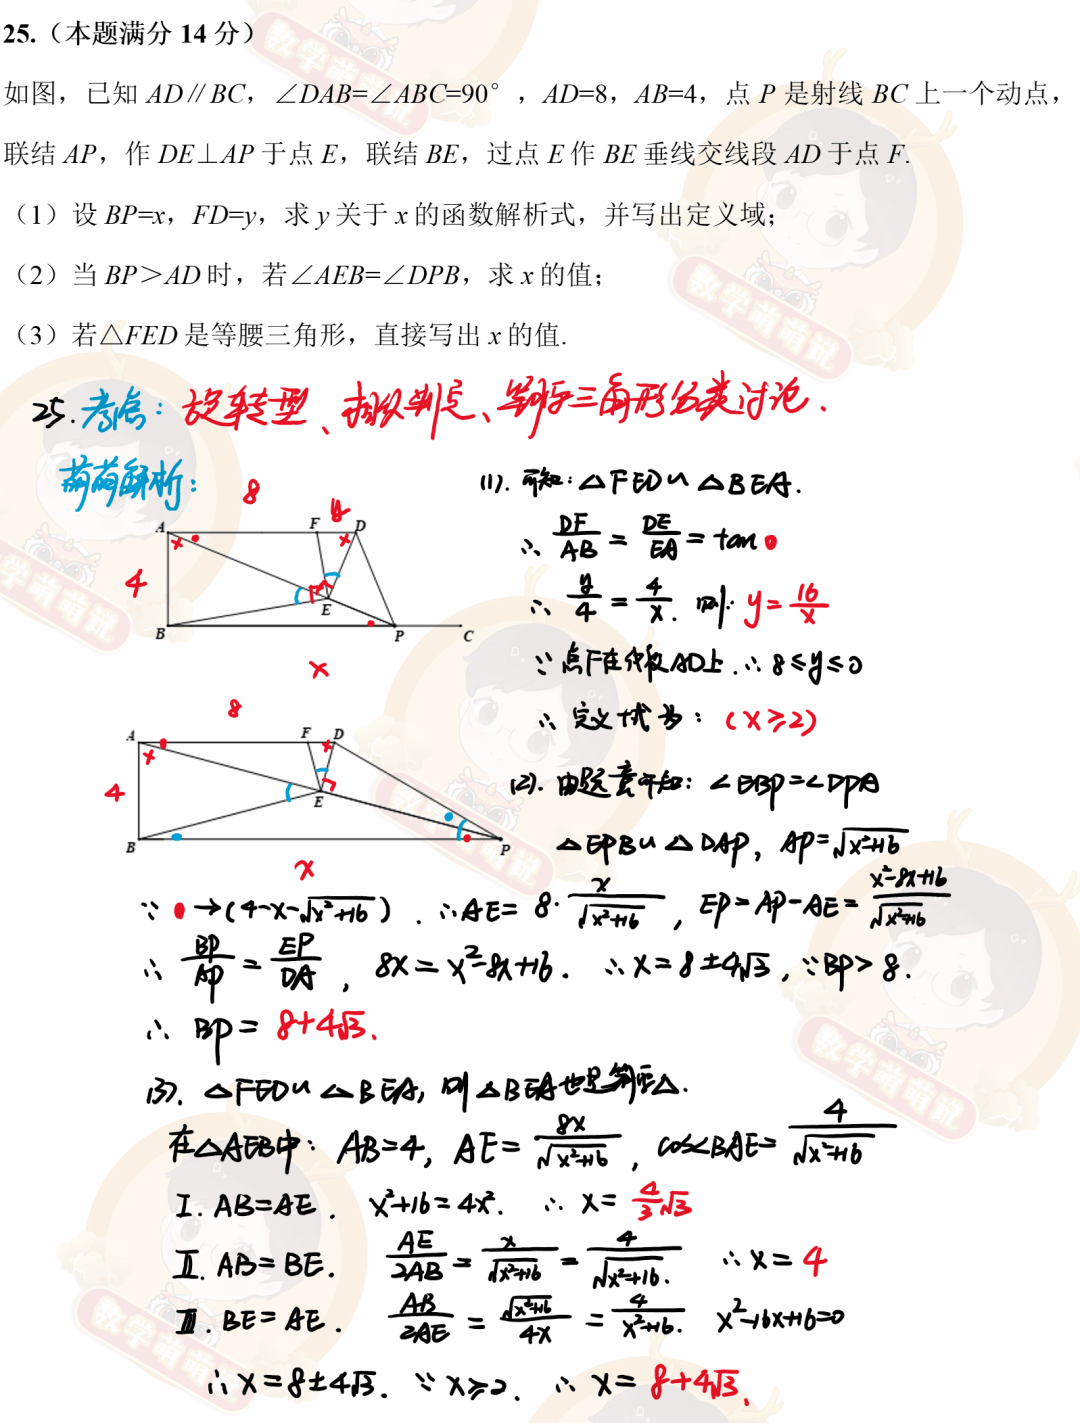 25.（本题满分 14 分）
如图，已知 AD∥BC，∠DAB=∠ABC=90°，AD=8，AB=4，点 P 是射线 BC 上一个动点，
联结 AP，作 DE⊥AP 于点 E，联结 BE，过点 E 作 BE 垂线交线段 AD 于点 F.
（1）设 BP=x，FD=y，求 y 关于 x 的函数解析式，并写出定义域；
（2）当 BP＞AD 时，若∠AEB=∠DPB，求 x 的值；
（3）若△FED 是等腰三角形，直接写出 x 的值.
25.考点：旋转型、相似判定、等腰三角形分类讨论.
萌萌解析：
8 y
A F D
4
E
B P C
x
(1). 可知：△FED∽△BEA.
∴ DF/AB = DE/EA = tan
∴ y/4 = 4/x. 则：y=16/x
∵点F在线段AD上.∴8≤y≤0
∴定义域为：(x≥2)
8
A F D
4
E
B P
x
(2). 由题意可知：∠EBP=∠DPA
△EPB∽△DAP，AP=√x²+16
∵ →(4-x-√x²+16).∴AE= 8·x/√x²+16，EP=AP-AE= x²-8x+16/√x²+16
∴ BP/AP = EP/DA，8x=x²-8x+16. ∴x=8±4√3，∵BP>8.
∴ BP= 8+4√3.
(3). △FED∽△BEA，则△BEA也是等腰△.
在△AEB中：AB=4，AE= 8x/√x²+16，cos∠BAE= 4/√x²+16
Ⅰ. AB=AE. x²+16=4x². ∴ x= 4/3√3
Ⅱ. AB=BE. AE/2AB = x/√x²+16 = 4/√x²+16. ∴x=4
Ⅲ. BE=AE. AB/2AE = √x²+16/4x = 4/x²+16. x²-16x+16=0
∴x=8±4√3. ∵x≥2. ∴ x= 8+4√3.
数学萌萌说